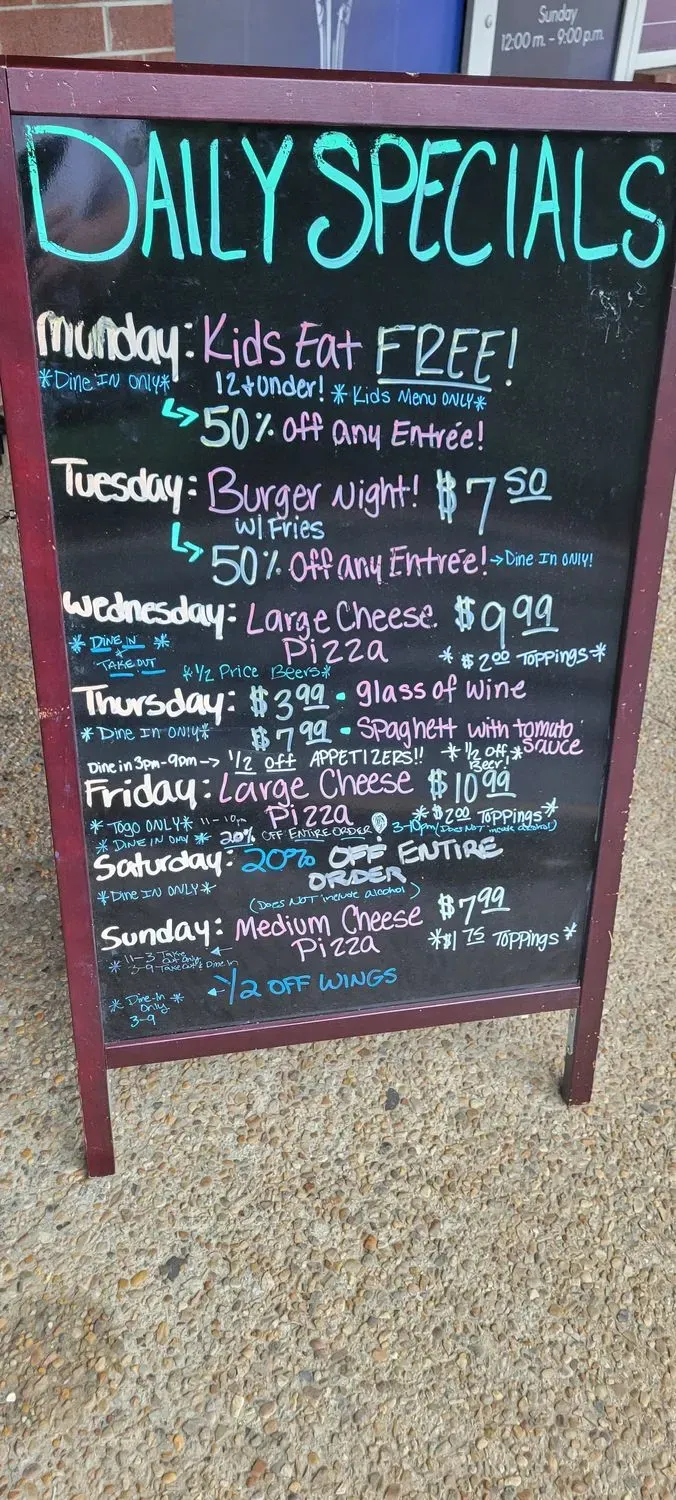 Sunday
12:00 m. - 9:00 p.m.
DAILY SPECIALS
Munday: Kids Eat FREE!
*Dine IN ONLY* 12 & under! *Kids Menu ONLY*
50% off any Entrée!
Tuesday: Burger Night! $7 50
w/ Fries
50% Off any Entrée! → Dine In ONLY!
Wednesday: Large Cheese $9 99
* DINE IN * Pizza * $2 00 Toppings *
& TAKE OUT *1/2 Price Beers*
Thursday: $3 99 • glass of wine
*Dine In ONLY* $7 99 • Spaghett with tomato sauce
Dine in 3pm-9pm → 1/2 Off APPETIZERS!! *1/2 off* Beer!
Friday: Large Cheese $10 99
*Togo ONLY* 11-10pm Pizza *$2 00 Toppings*
*DINE IN ONLY* 20% OFF ENTIRE ORDER 3-10pm (Does NOT include alcohol)
Saturday: 20% OFF ENTIRE
*Dine IN ONLY* ORDER
(Does NOT include alcohol)
Sunday: Medium Cheese $7 99
* 11-3 Take Out Only Pizza *$1 75 Toppings*
* 3-9 Take Out & Dine In
* Dine-In * 1/2 OFF WINGS
Only
3-9